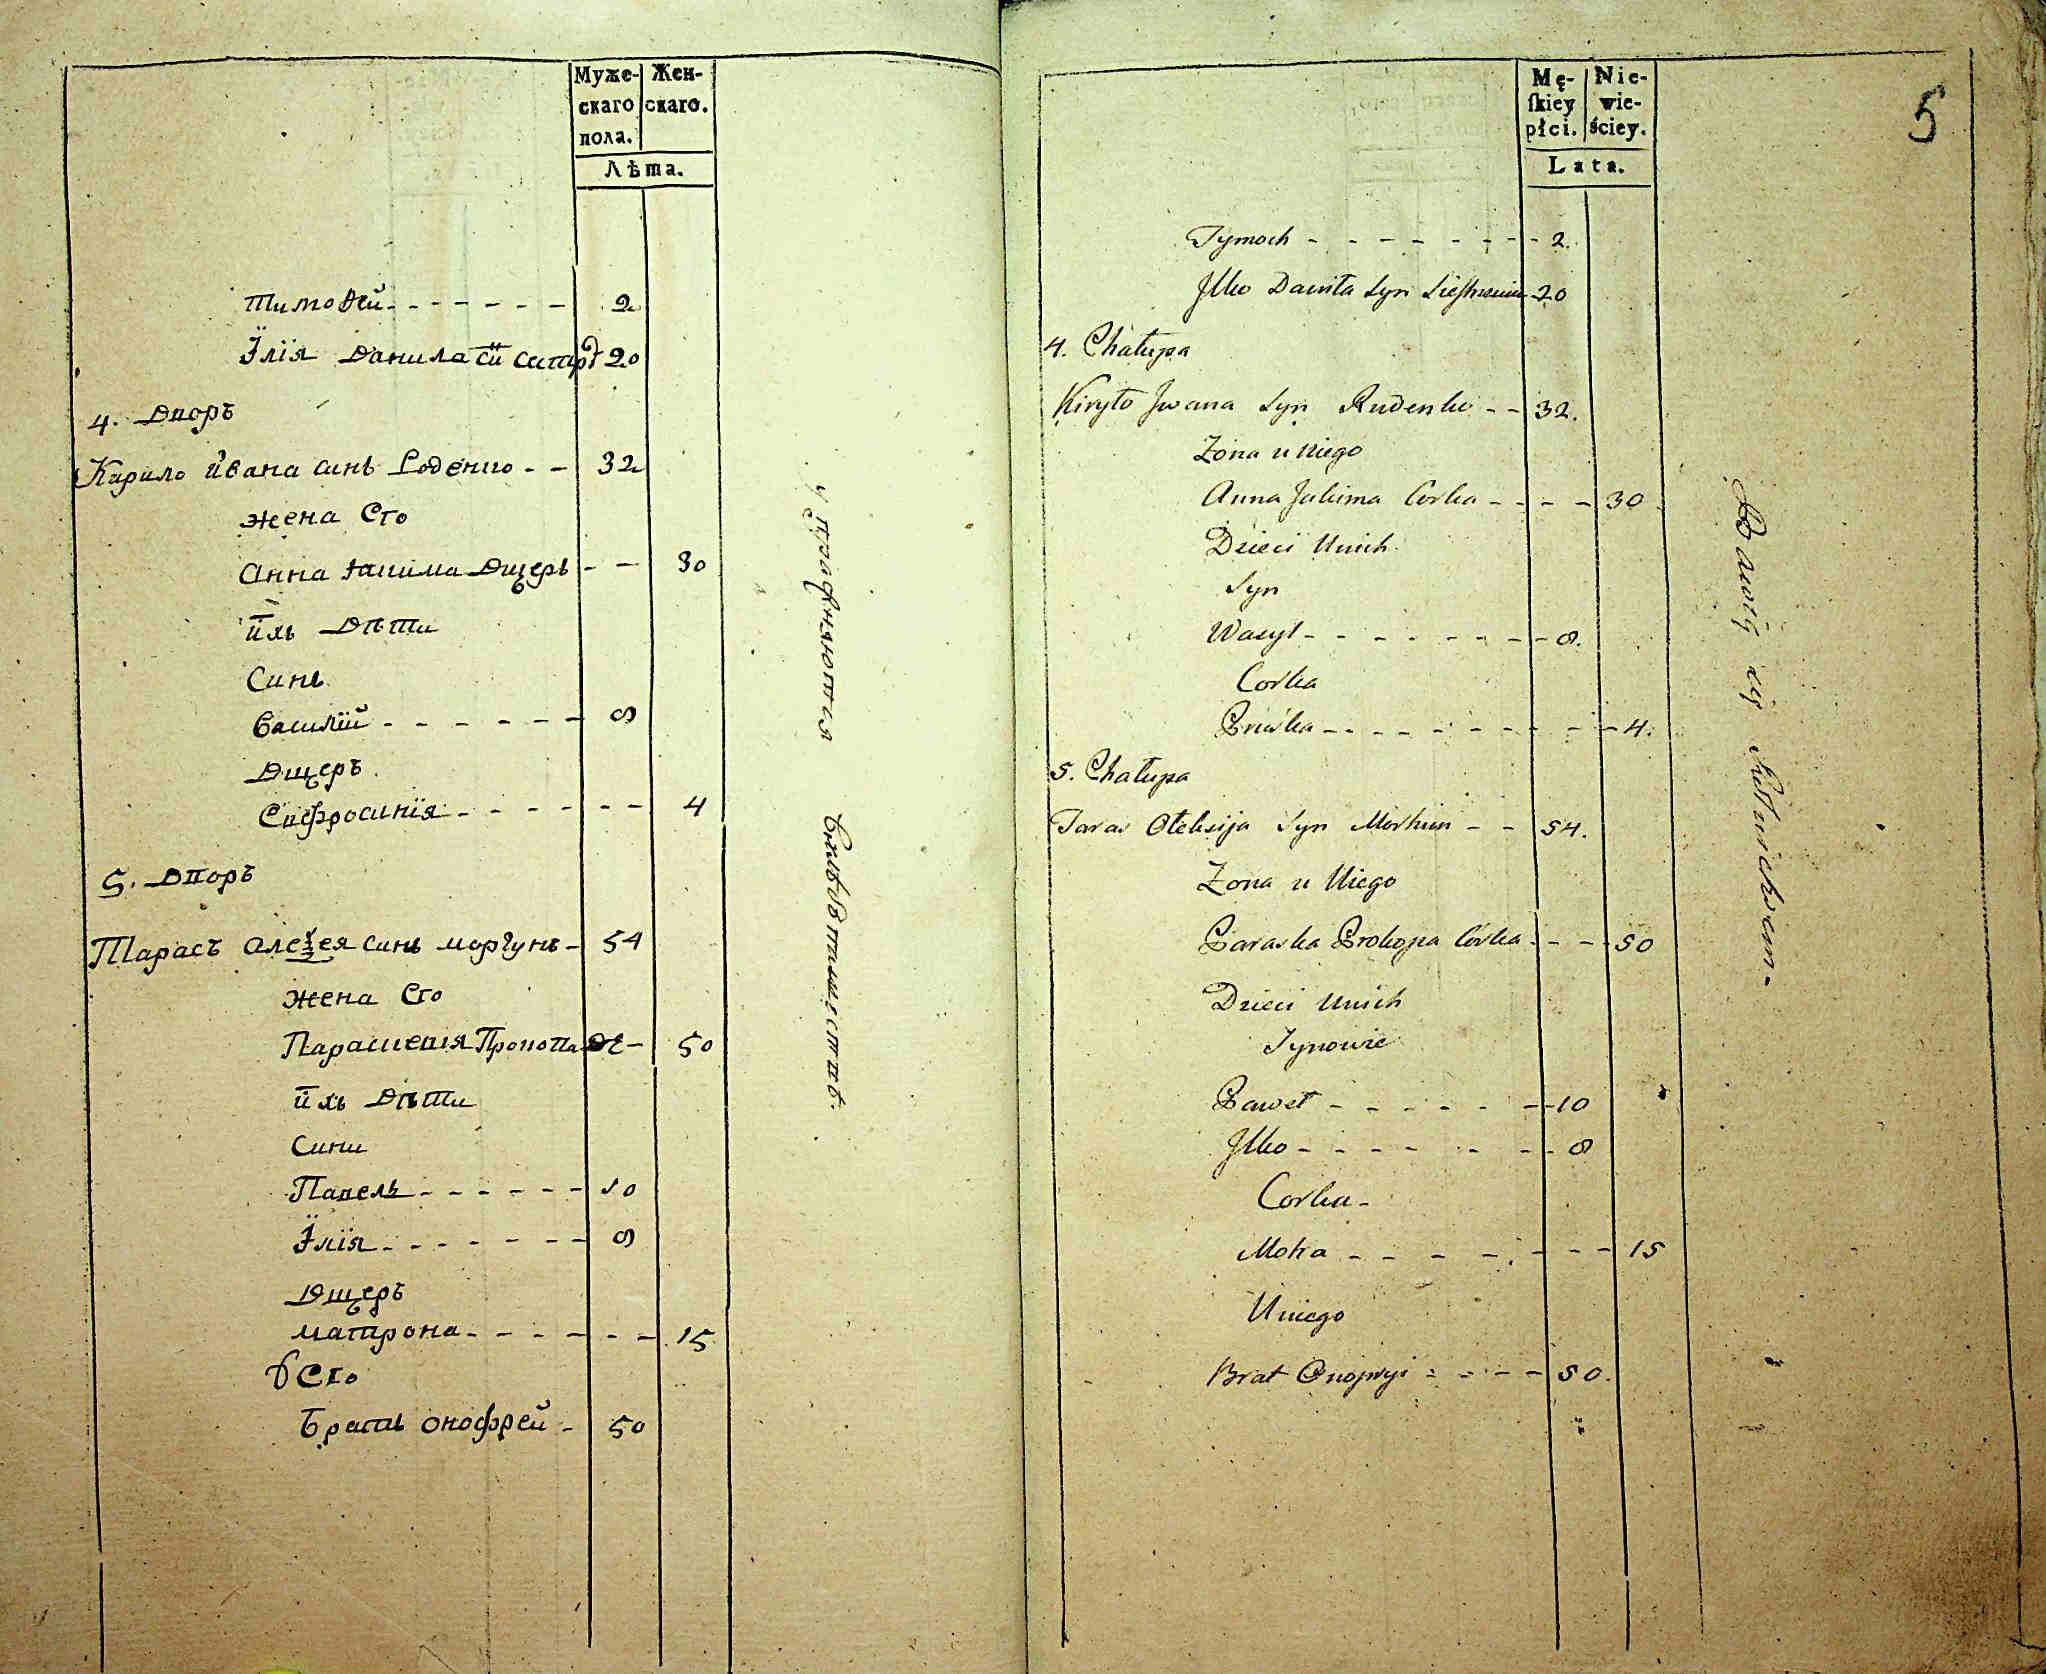 Муже-
скаго
пола.
Жен-
скаго.
Лѣта.
Тимоѳей 2
Ілія Данила 20
4. Дворъ
Кирило Ивана синъ Роденко 32
Жена Его
Анна Якима Дщеръ 30
ихъ Дѣти
Синъ
Василій 8
Дщеръ
Євфросинія 4
5. Дворъ
Тарасъ Алеѯея синъ моргунъ 54
Жена Его
Параскевия Прокопа 50
ихъ Дѣти
Сини
Павелъ 10
Ілія 8
Дщеръ
матрона 15
У Его
Братъ онофрей 50
упражняются
въ хлѣбопашествѣ.
5
Mę-
skiey
płci.
Nie-
wie-
ściey.
Lata.
Tymoch 2.
Jlko Daniła Syn 20
4. Chałupa
Kiryło Jwana Syn Rudenko 32.
Zona u Niego
Anna Jakima Corka 30
Dzieci Unich
Syn
Wasyl 8.
Corka
Pruśka 4.
5. Chałupa
Taras Ołeksija Syn Morhun 54.
Zona u Niego
Paraska Prokopa Córka 50
Dzieci Unich
Synowie
Paweł 10
Jlko 8
Corka
Motra 15
Uniego
Brat Onopryi 50.
Bawią się Rolnictwem